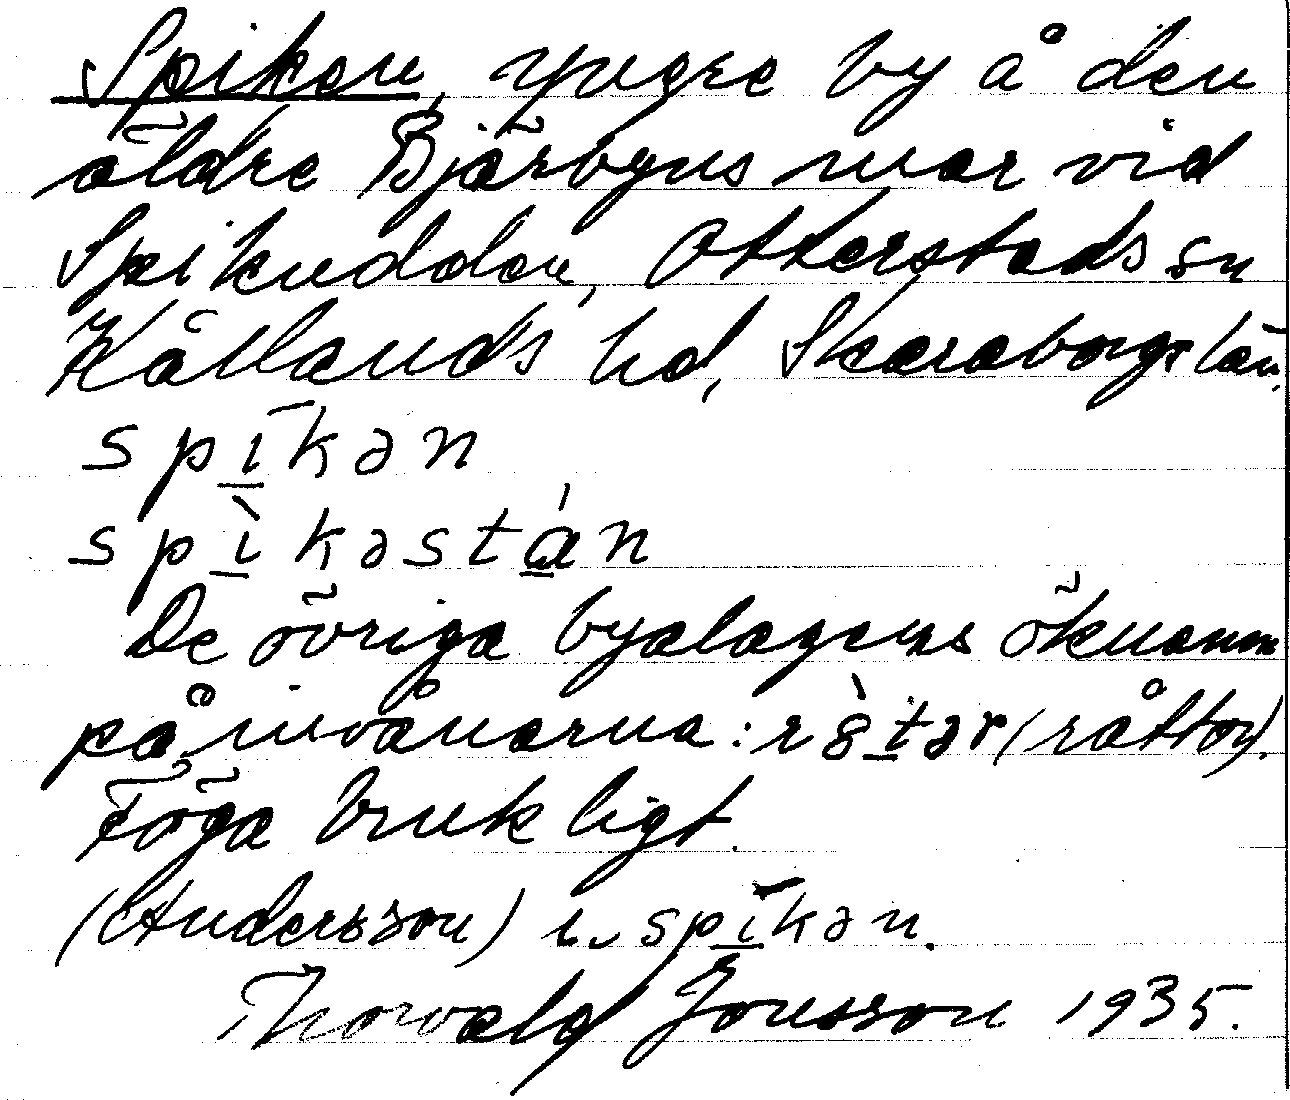 Spiken, yngre by å den
äldre Bjärbyns mar vid
Spikudden, Otterstads sn
Kållands hd, Skaraborgs län.
spīkən
spìkəstán
De övriga byalagens öknamn
på invånarna: ròtər (råttor).
Föga brukligt.
(Andersson) i spīkən.
Thorvald Jonsson 1935.